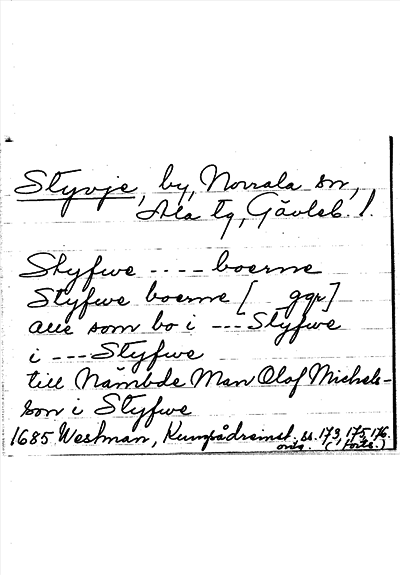 Styvje, by, Norrala sn,
Ala tg, Gävleb. l.
Styfwe ---- boerne
Styfwe boerne [ ggr]
alle som bo i --- Styfwe
i --- Styfwe
till Nämbde Man Olof Michels-
son i Styfwe
1685 Westman, ss. 173, 175, 176.
(forts.)